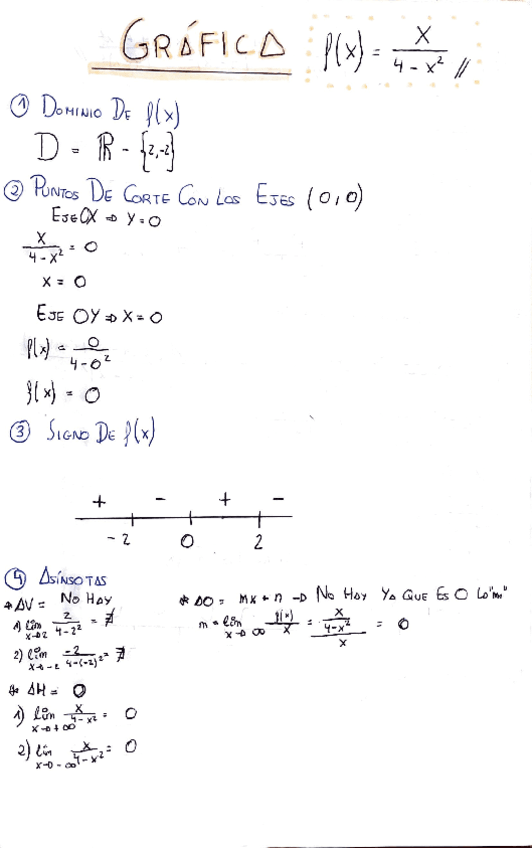 GRÁFICA f(x) = x / (4 - x²) //
① DOMINIO DE f(x)
D = ℝ - {2,-2}
② PUNTOS DE CORTE CON LOS EJES (0,0)
EJE OX ⇒ Y=0
x / (4 - x²) = 0
x = 0
EJE OY ⇒ X=0
f(x) = 0 / (4 - 0²)
f(x) = 0
③ SIGNO DE f(x)
+ - + -
-2 0 2
④ ASÍNSOTAS
* AV = NO HAY
1) lim x→2 2 / (4-2²) = ∄
2) lim x→-2 -2 / (4-(-2)²) = ∄
* AH = 0
1) lim x→+∞ x / (4-x²) = 0
2) lim x→-∞ x / (4-x²) = 0
* AO = mx + n → NO HAY YA QUE ES 0 LA "m"
m = lim x→∞ f(x) / x = (x / (4-x²)) / x = 0